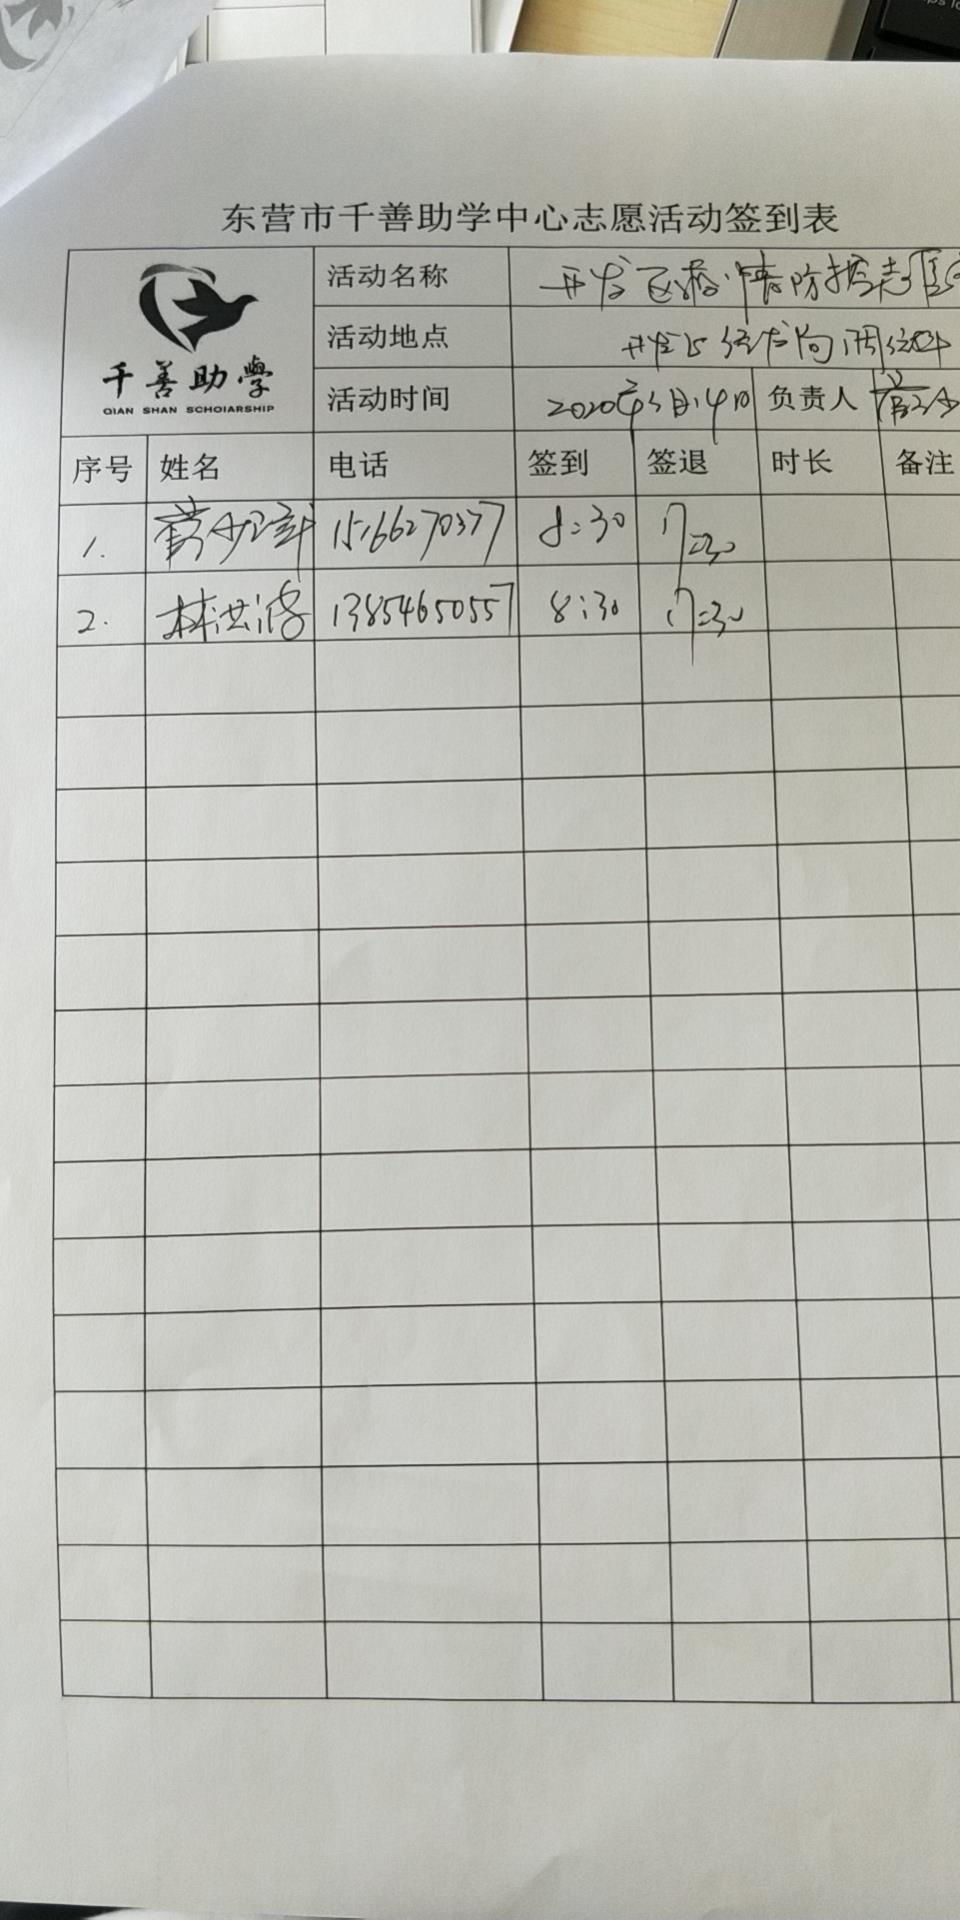 东营市千善助学中心志愿活动签到表
千善助學
QIAN SHAN SCHOIARSHIP
活动名称 开发区疫情防控志愿
活动地点 开发区
活动时间 2020年3月14日 负责人
序号 姓名 电话 签到 签退 时长 备注
1. 15166270377 8:30 17:30
2. 林洪 13854650557 8:30 17:30